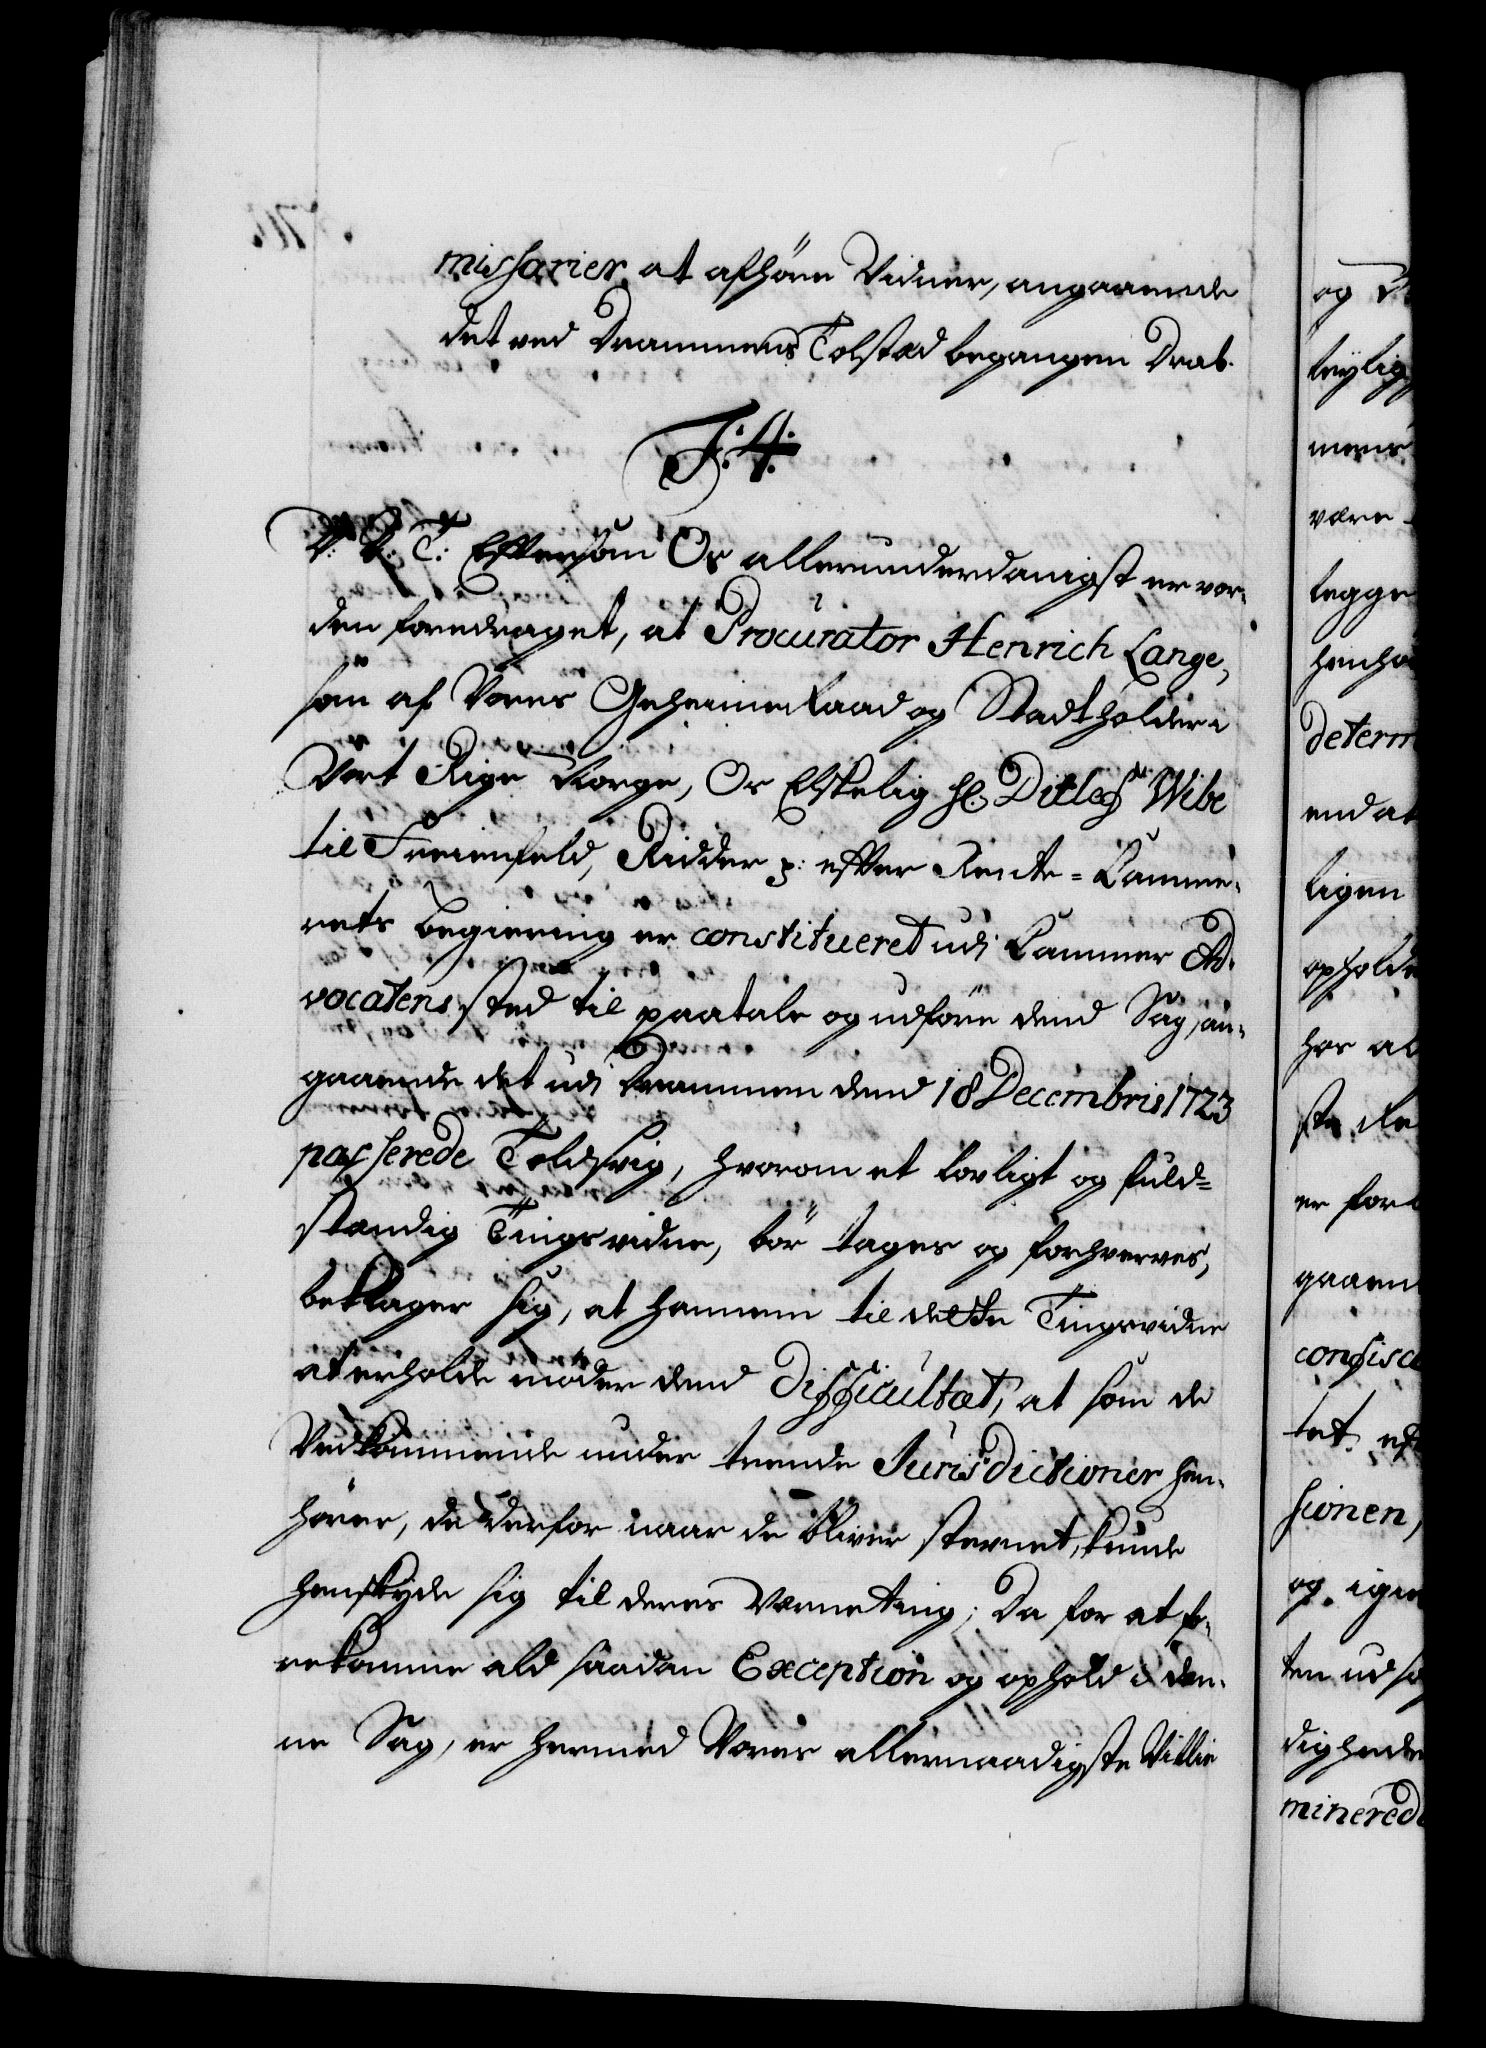 missarier, at afhöre Vidner, angaaende
det ved Drammens Tolsted begangen Drab.
F: 4:
V: G: T: Eftersom Os allerunderdanigst er vor-
den foredraget, at Procurator Henrich Lange,
som af Vores Geheime Raad og Stadtholder i
Vort Rige Norge, Os Elskelig Hr. Ditlef Wibe
til Freienfeld, Ridder p: efter Rente-Camme-
rets begiering er constitueret udi Cammer Ad-
vocatens sted til paatale og udföre dend Sag, an-
gaaende det udi Drammen dend 18 Decembris 1723
passerede Toldsvig, hvorom et lovligt og fuld-
stændig Tingsvidne, bör tages og forhverves,
beklager sig, at hannem til dette Tingsvidne
at erholde möder dend Difficultæt, at som de
Vedkommende under trende Jurisdictioner hen-
hörer, de derfor naar de bliver stevnet, kunde
henskyde sig til deres Værneting; Da for at fo-
rekomme ald saadan Exception og ophold i den-
ne Sag, er hermed Vores allernaadigste Villie
og
teylig
mens
være
legge
henhö
determ
end at
ligen
opholde
hos al
ste
er for
gaaen
confisca
tet
sionen,
og igien
ten uds
digheder
minerede